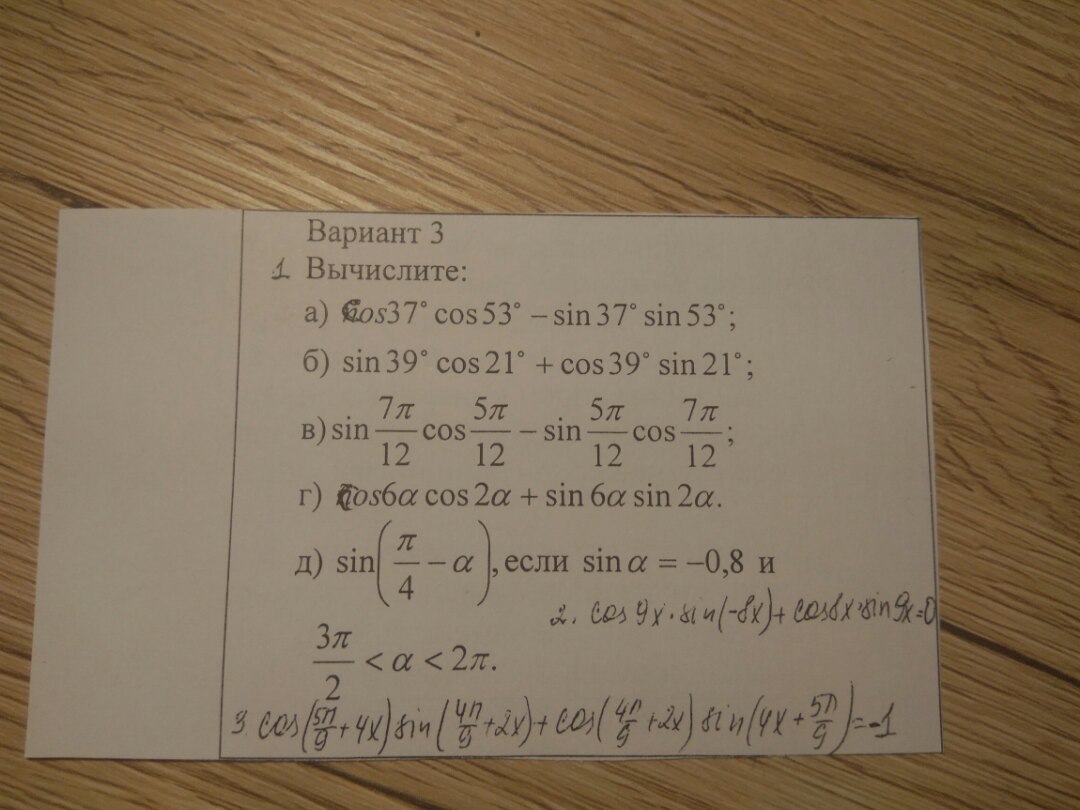 Вариант 3
1 Вычислите:
а) cos37° cos53° − sin37° sin53°;
б) sin39° cos21° + cos39° sin21°;
в) sin 7π/12 cos 5π/12 − sin 5π/12 cos 7π/12;
г) cos6α cos2α + sin6α sin2α.
д) sin(π/4 − α), если sinα = −0,8 и
2. cos9x·sin(-8x)+cos8x·sin9x=0
3π/2 < α < 2π.
3 cos(5π/9+4x)sin(4π/9+2x)+cos(4π/9+2x)sin(4x+5π/9)=-1